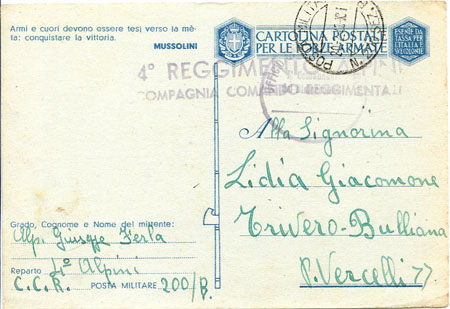 Armi e cuori devono essere tesi verso la mè-
ta: conquistare la vittoria.
MUSSOLINI
CARTOLINA POSTALE
PER LE FORZE ARMATE
ESENTE DA
TASSA PER
L'ITALIA E
SUE COLONIE
POSTA MILITARE N.
4° REGGIMENTO ALPINI
COMPAGNIA COMANDO REGGIMENTALE
Alla Signorina
Lidia Giacomone
Trivero-Bulliana
P. Vercelli 77
Grado, Cognome e Nome del mittente:
Alp. Giuseppe Festa
Reparto 4° Alpini
C.C.R. POSTA MILITARE 200/B.